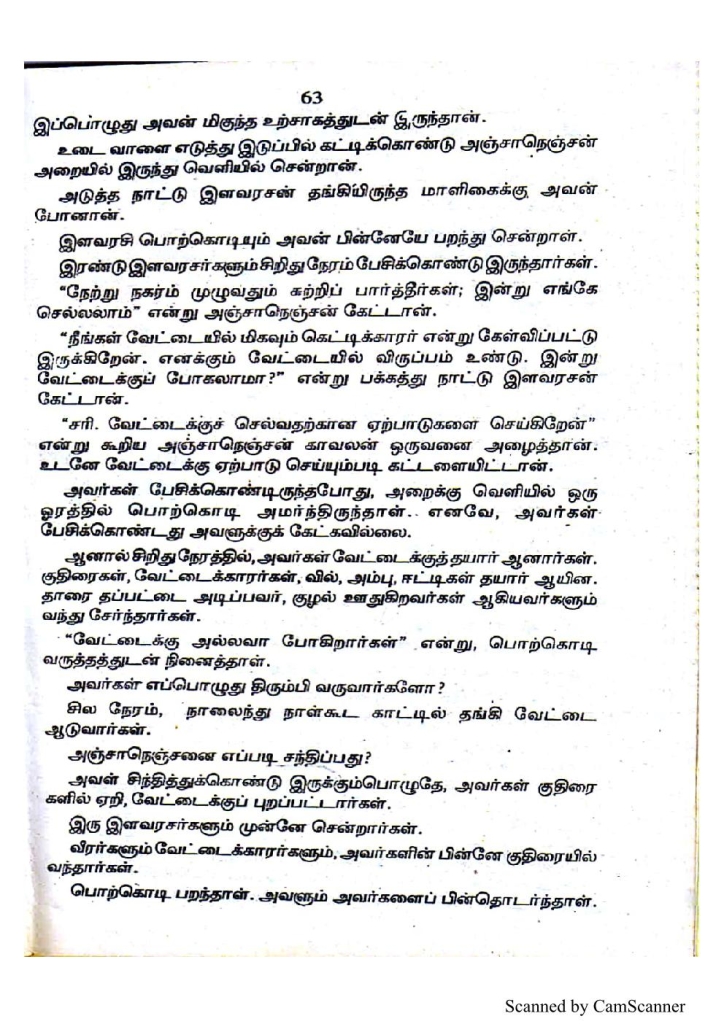 63
இப்பொழுது அவன் மிகுந்த உற்சாகத்துடன் இருந்தான்.
உடை வாளை எடுத்து இடுப்பில் கட்டிக்கொண்டு அஞ்சாநெஞ்சன்
அறையில் இருந்து வெளியில் சென்றான்.
அடுத்த நாட்டு இளவரசன் தங்கியிருந்த மாளிகைக்கு அவன்
போனான்.
இளவரசி பொற்கொடியும் அவன் பின்னேயே பறந்து சென்றாள்.
இரண்டு இளவரசர்களும் சிறிது நேரம் பேசிக்கொண்டு இருந்தார்கள்.
"நேற்று நகரம் முழுவதும் சுற்றிப் பார்த்தீர்கள்; இன்று எங்கே
செல்லலாம்" என்று அஞ்சாநெஞ்சன் கேட்டான்.
"நீங்கள் வேட்டையில் மிகவும் கெட்டிக்காரர் என்று கேள்விப்பட்டு
இருக்கிறேன். எனக்கும் வேட்டையில் விருப்பம் உண்டு. இன்று
வேட்டைக்குப் போகலாமா?" என்று பக்கத்து நாட்டு இளவரசன்
கேட்டான்.
"சரி. வேட்டைக்குச் செல்வதற்கான ஏற்பாடுகளை செய்கிறேன்"
என்று கூறிய அஞ்சாநெஞ்சன் காவலன் ஒருவனை அழைத்தான்.
உடனே வேட்டைக்கு ஏற்பாடு செய்யும்படி கட்டளையிட்டான்.
அவர்கள் பேசிக்கொண்டிருந்தபோது, அறைக்கு வெளியில் ஒரு
ஓரத்தில் பொற்கொடி அமர்ந்திருந்தாள். எனவே, அவர்கள்
பேசிக்கொண்டது அவளுக்குக் கேட்கவில்லை.
ஆனால் சிறிது நேரத்தில், அவர்கள் வேட்டைக்குத் தயார் ஆனார்கள்.
குதிரைகள், வேட்டைக்காரர்கள், வில், அம்பு, ஈட்டிகள் தயார் ஆயின.
தாரை தப்பட்டை அடிப்பவர், குழல் ஊதுகிறவர்கள் ஆகியவர்களும்
வந்து சேர்ந்தார்கள்.
"வேட்டைக்கு அல்லவா போகிறார்கள்" என்று, பொற்கொடி
வருத்தத்துடன் நினைத்தாள்.
அவர்கள் எப்பொழுது திரும்பி வருவார்களோ?
சில நேரம், நாலைந்து நாள்கூட காட்டில் தங்கி வேட்டை
ஆடுவார்கள்.
அஞ்சாநெஞ்சனை எப்படி சந்திப்பது?
அவள் சிந்தித்துக்கொண்டு இருக்கும்பொழுதே, அவர்கள் குதிரை
களில் ஏறி, வேட்டைக்குப் புறப்பட்டார்கள்.
இரு இளவரசர்களும் முன்னே சென்றார்கள்.
வீரர்களும் வேட்டைக்காரர்களும், அவர்களின் பின்னே குதிரையில்
வந்தார்கள்.
பொற்கொடி பறந்தாள். அவளும் அவர்களைப் பின்தொடர்ந்தாள்.
Scanned by CamScanner